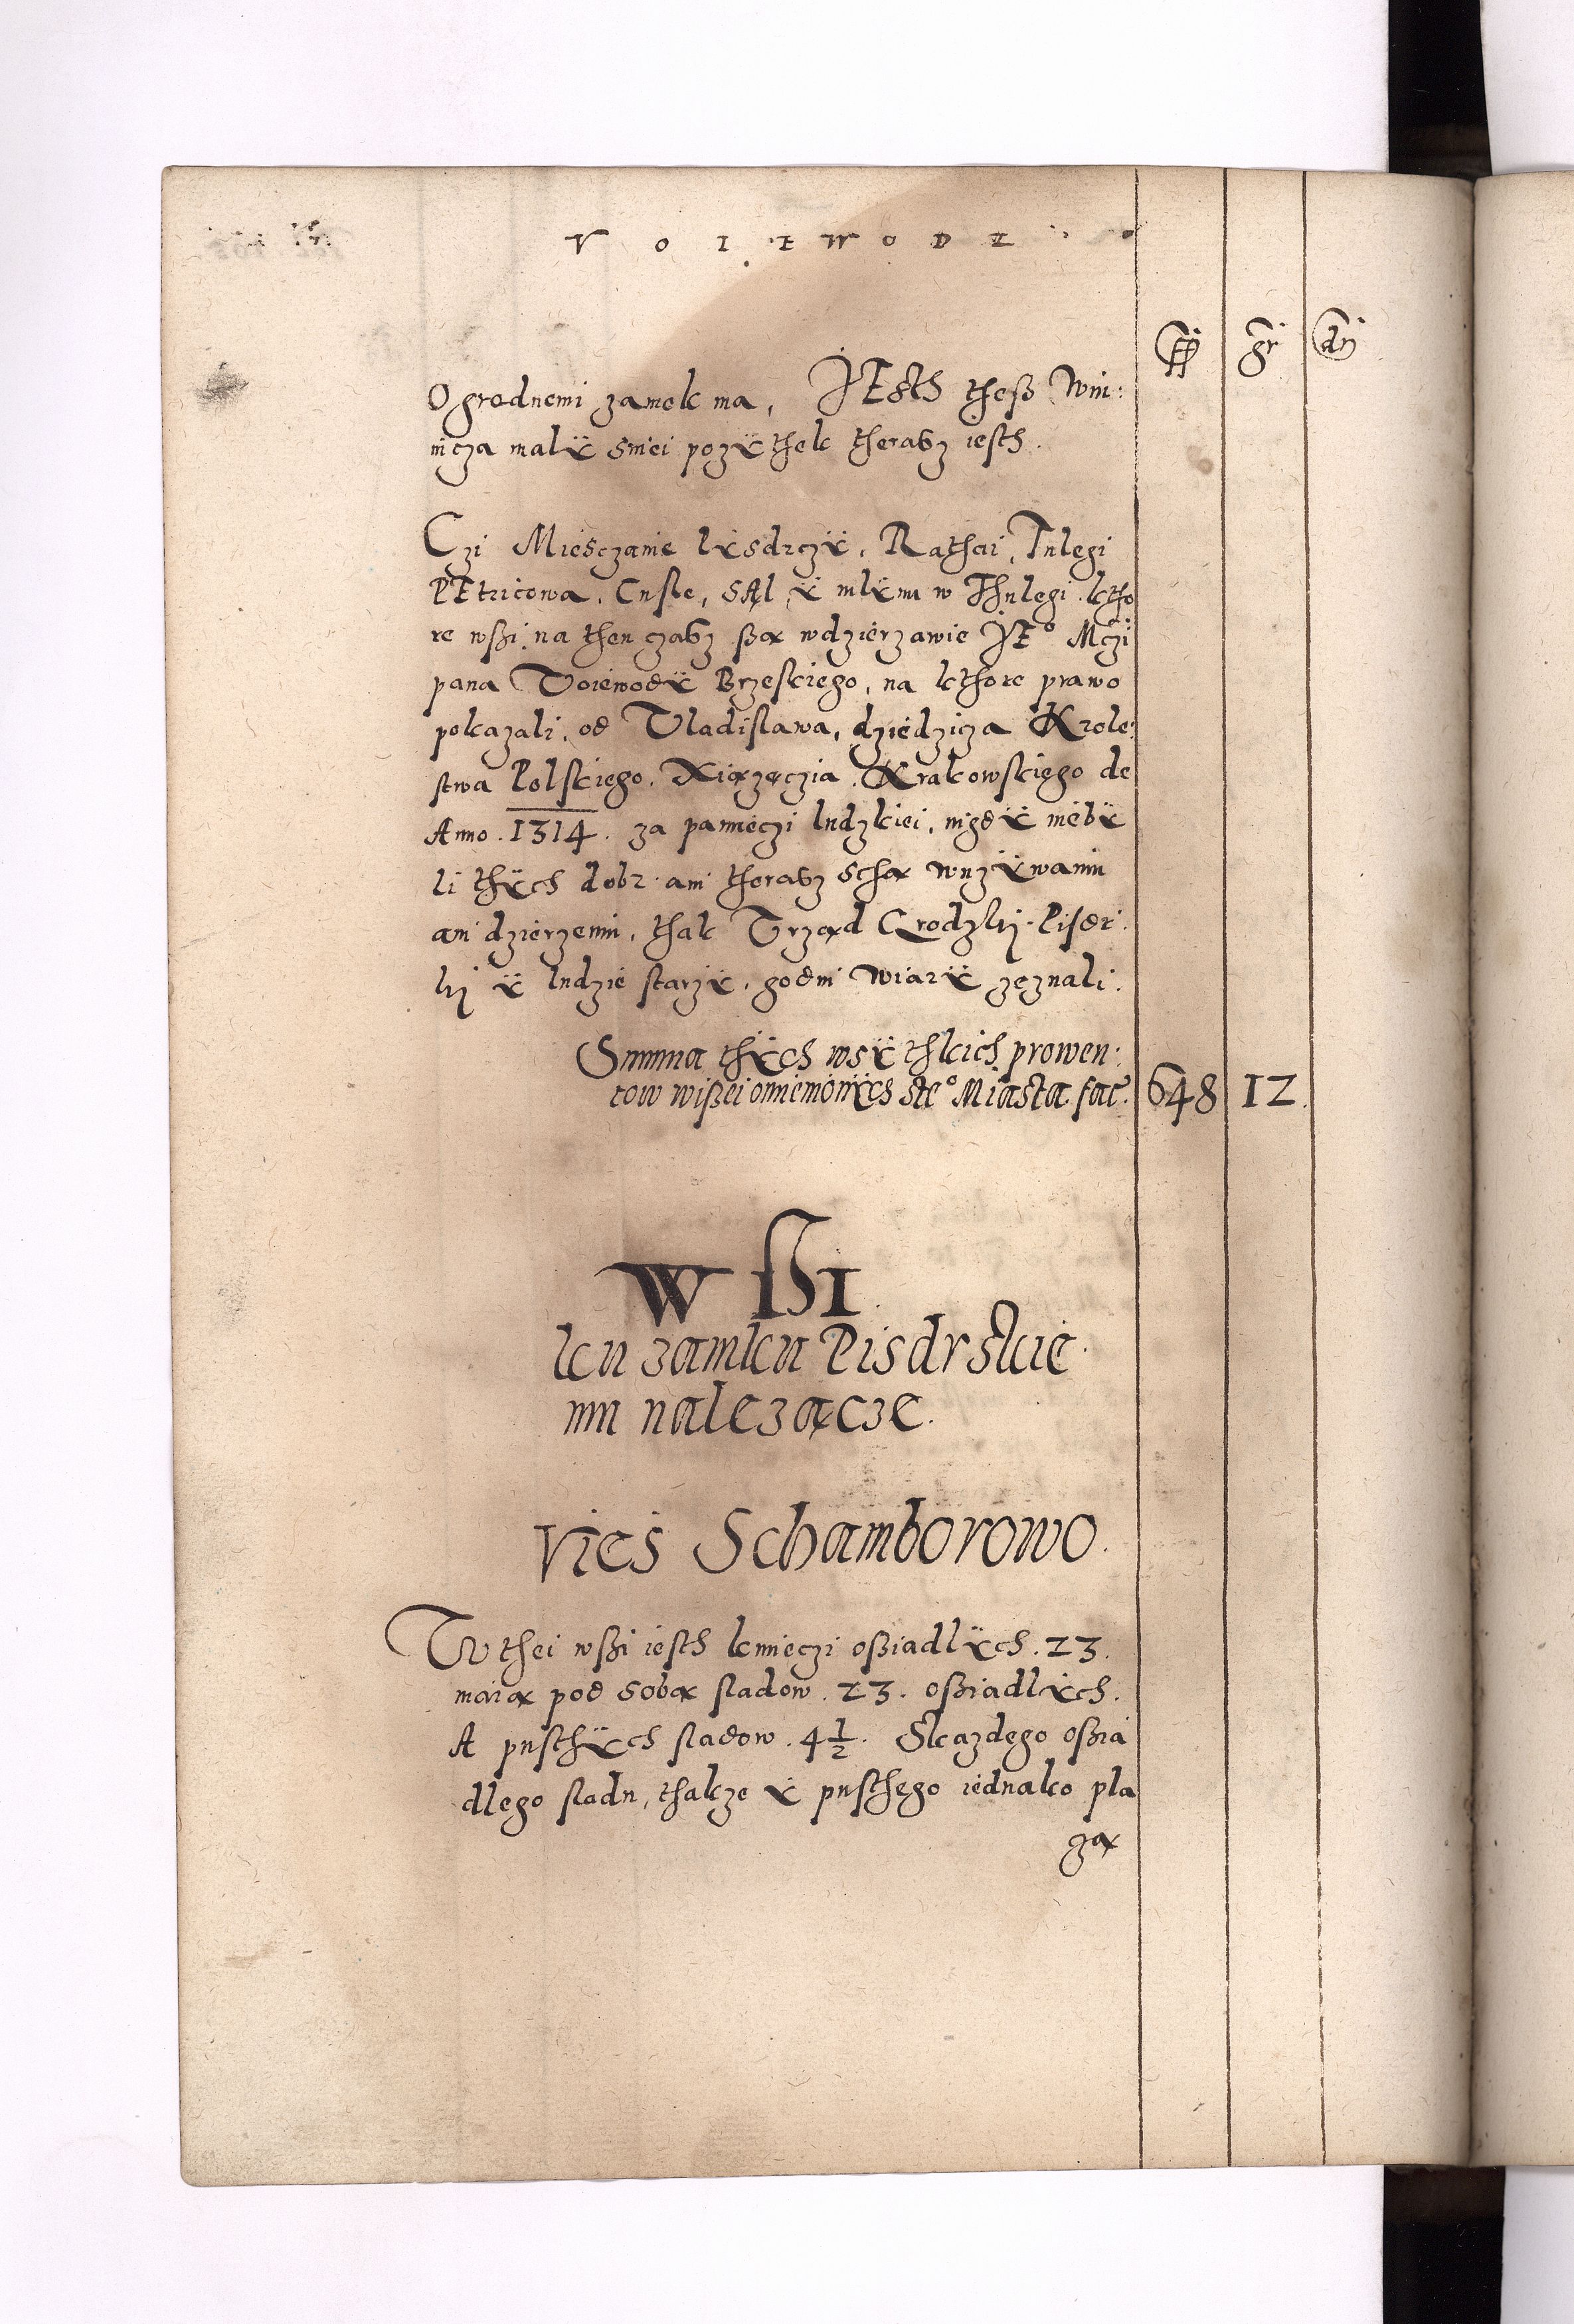 VOIEWODZ
fl gr dn
Ogrodnemi zamek ma, IEsth theß Win:
nicza malÿ sniei pozÿthek therasz iesth.
Czi Miesczanie Pÿsdrczÿ, Rathai, Tulegi
PEtricowa, Custe, sąl ÿ mlÿnu w Thulegi ktho
re wßi na then czasz ßą wdzierzawie IEº Mczi
pana Voiewodÿ Brzeskiego, na kthore prawo
pokazali od Vladislawa, dziedzicza Krole:
stwa Polskiego. Xiązęczia Krakowskiego de
Anno. 1314. za pamieczi ludzkiei, nigdÿ niebÿ
li thÿch dobr ani therasz schą wuzÿwaniu
ani dzierzeniu, thak Vrząd Grodzki Pisdr
ki ÿ ludzie starzÿ, godni wiarÿ zeznali.
Summa thÿch wsÿthkich prowen:
tow wißei omiemonÿch steº Miasta fac̃. 648 12.
W ßI
ku zamku Pisdrskie
mu nalezącze.
Vies Schamborowo.
W thei wßi iesth kmieczi oßiadlÿch. 23.
maią pod sobą sladow. 23. oßiadlÿch.
A pusthÿch sladow. 4 1/2. Skazdego oßia
dlego sladu, thakze ÿ pusthego iednako pla
zą